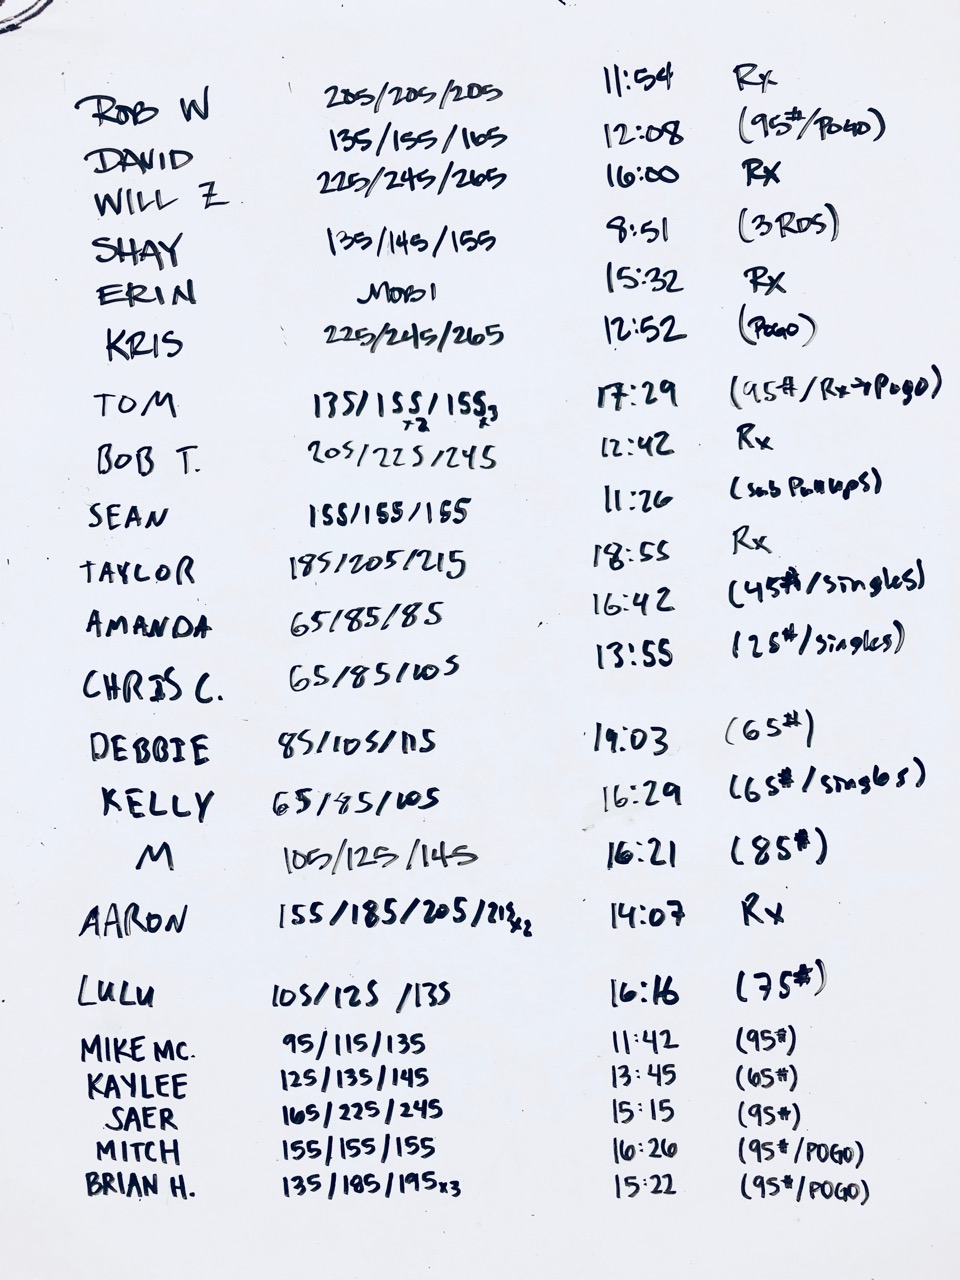 ROB W 205/205/205 11:54 Rx
DAVID 135/155/165 12:08 (95#/POGO)
WILL Z 225/245/265 16:00 RX
SHAY 135/145/155 8:51 (3 RDS)
ERIN MOBI 15:32 Rx
KRIS 225/245/265 12:52 (POGO)
TOM 135/155x2/155x3 17:29 (95#/Rx→Pogo)
BOB T. 205/225/245 12:42 Rx
SEAN 155/155/155 11:26 (sub Pullups)
TAYLOR 185/205/215 18:55 Rx
AMANDA 65/85/85 16:42 (45#/singles)
CHRIS C. 65/85/105 13:55 (25#/singles)
DEBBIE 85/105/115 19:03 (65#)
KELLY 65/85/105 16:29 (65#/singles)
M 105/125/145 16:21 (85#)
AARON 155/185/205/215x2 14:07 Rx
LULU 105/125/135 16:16 (75#)
MIKE MC. 95/115/135 11:42 (95#)
KAYLEE 125/135/145 13:45 (65#)
SAER 165/225/245 15:15 (95#)
MITCH 155/155/155 16:26 (95#/POGO)
BRIAN H. 135/185/195x3 15:22 (95#/POGO)